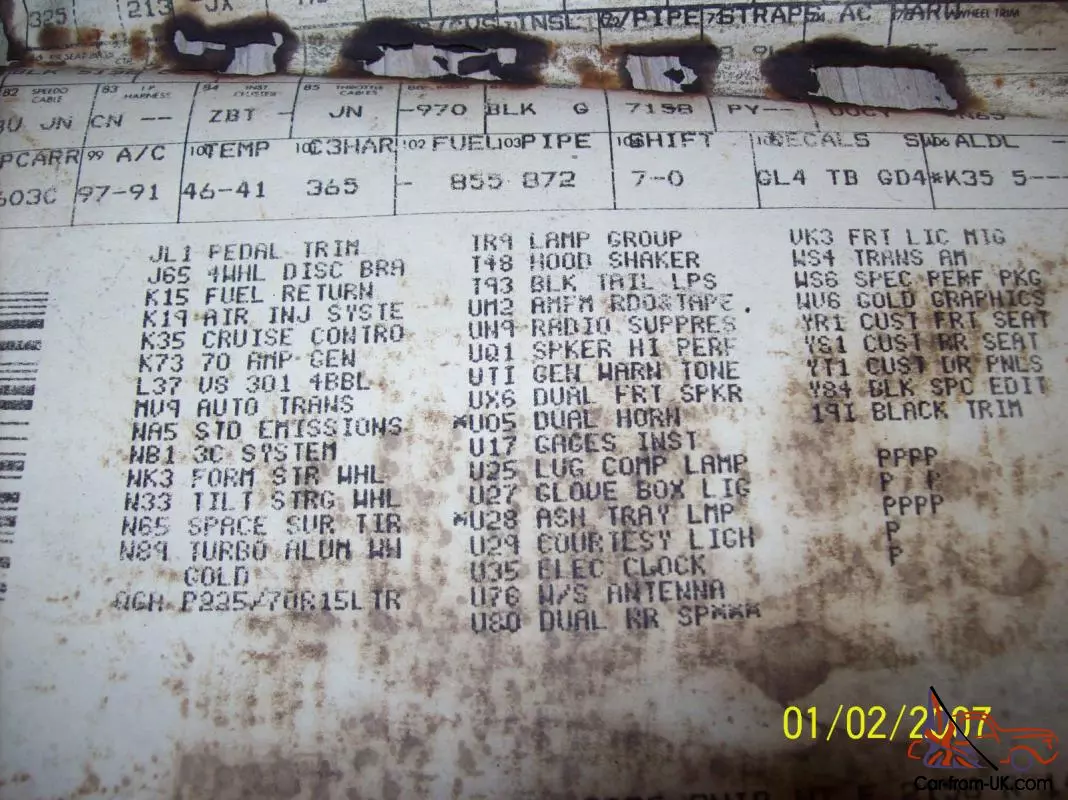 325 213 -JX 312
INSL 72/PIPE 73STRAPS AC HARW WHEEL TRIM
82 SPEEDO CABLE 83 I.P HARNESS 84 INST CLUSTER 85 THROTTLE CABLES
JN CN -- ZBT - JN -970 BLK G 7198 PY--
PCARR 99 A/C 100TEMP C3HAR 102 FUEL 103PIPE SHIFT DECALS ALDL -
603C 97-91 46-41 365 - 855 872 7-0 GL4 TB GD4*K35 5---
JL1 PEDAL TRIM
J65 4WHL DISC BRA
K15 FUEL RETURN
K19 AIR INJ SYSTE
K35 CRUISE CONTRO
K73 70 AMP GEN
L37 V8 301 4BBL
MV9 AUTO TRANS
NA5 STD EMISSIONS
NB1 3C SYSTEM
NK3 FORM STR WHL
N33 TILT STRG WHL
N65 SPACE SUR TIR
N89 TURBO ALUM WW
GOLD
QGH P225/70R15LTR
TR9 LAMP GROUP
T48 HOOD SHAKER
T93 BLK TAIL LPS
UM2 AMFM RDO&TAPE
UN9 RADIO SUPPRES
UQ1 SPKER HI PERF
UT1 GEN WARN TONE
UX6 DUAL FRT SPKR
*U05 DUAL HORN
U17 GAGES INST
U25 LUG COMP LAMP
U27 GLOVE BOX LIG
*U28 ASH TRAY LMP
U29 COURTESY LIGH
U35 ELEC CLOCK
U76 W/S ANTENNA
U80 DUAL RR SP***
VK3 FRT LIC MTG
WS4 TRANS AM
WS6 SPEC PERF PKG
WV6 GOLD GRAPHICS
YR1 CUST FRT SEAT
YS1 CUST RR SEAT
YT1 CUST DR PNLS
Y84 BLK SPC EDIT
19I BLACK TRIM
PPPP
P P
PPPP
P
P
01/02/2007
Car-from-UK.com